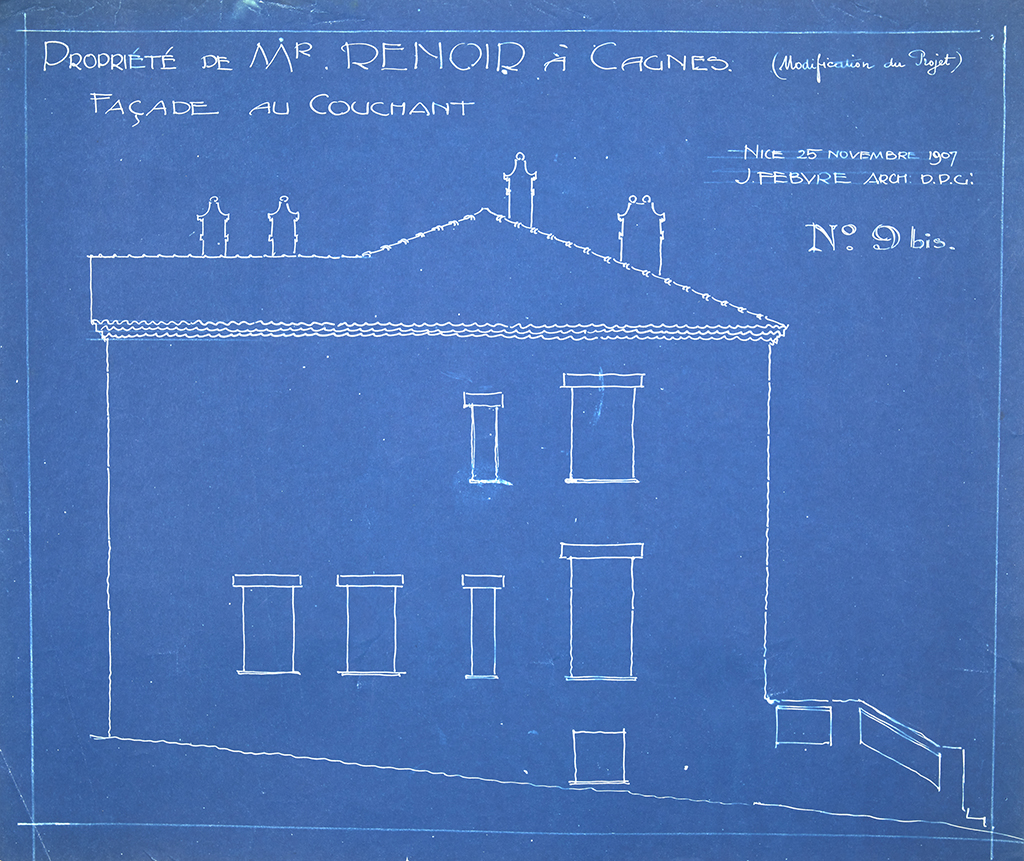 PROPRIÉTÉ DE MR. RENOIR. À CAGNES. (Modification du Projet)
FAÇADE AU COUCHANT
NICE 25 NOVEMBRE 1907
J. FEBVRE ARCH. D.P.G.
No. 9 bis.